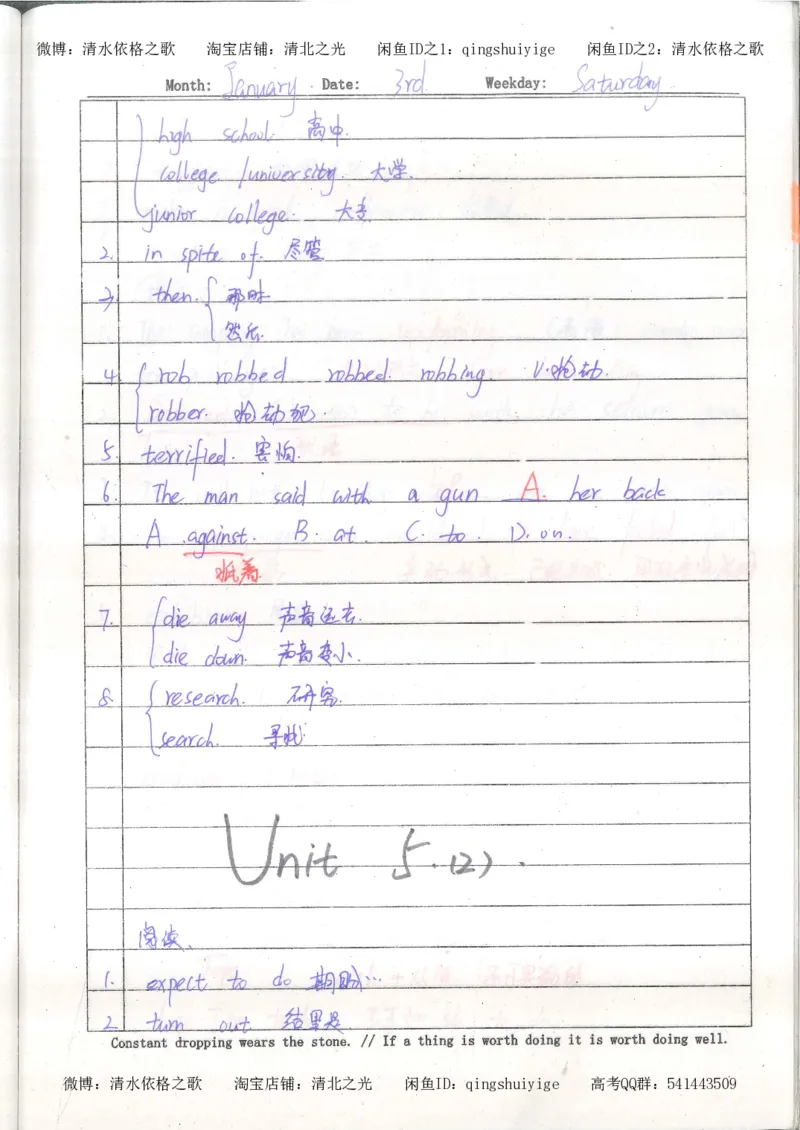 微博：清水依格之歌 淘宝店铺：清北之光 闲鱼ID之1：qingshuiyige 闲鱼ID之2：清水依格之歌
Month: January. Date: 3rd. Weekday: Saturday.
high school. 高中.
college /university. 大学.
junior college. 大专
2. in spite of. 尽管
3. then. 那时
然后.
4. rob robbed robbed. robbing. v.抢劫.
robber. 抢劫犯.
5. terrified. 害怕.
6. The man said with a gun A. her back
A against. B. at. C. to. D. on.
抵着.
7. die away 声音远去.
die down. 声音变小.
8. research. 研究.
search. 寻找
Unit 5.(2).
阅读.
1. expect to do 期盼…
2. turn out 结果是
Constant dropping wears the stone. // If a thing is worth doing it is worth doing well.
微博：清水依格之歌 淘宝店铺：清北之光 闲鱼ID：qingshuiyige 高考QQ群：541443509